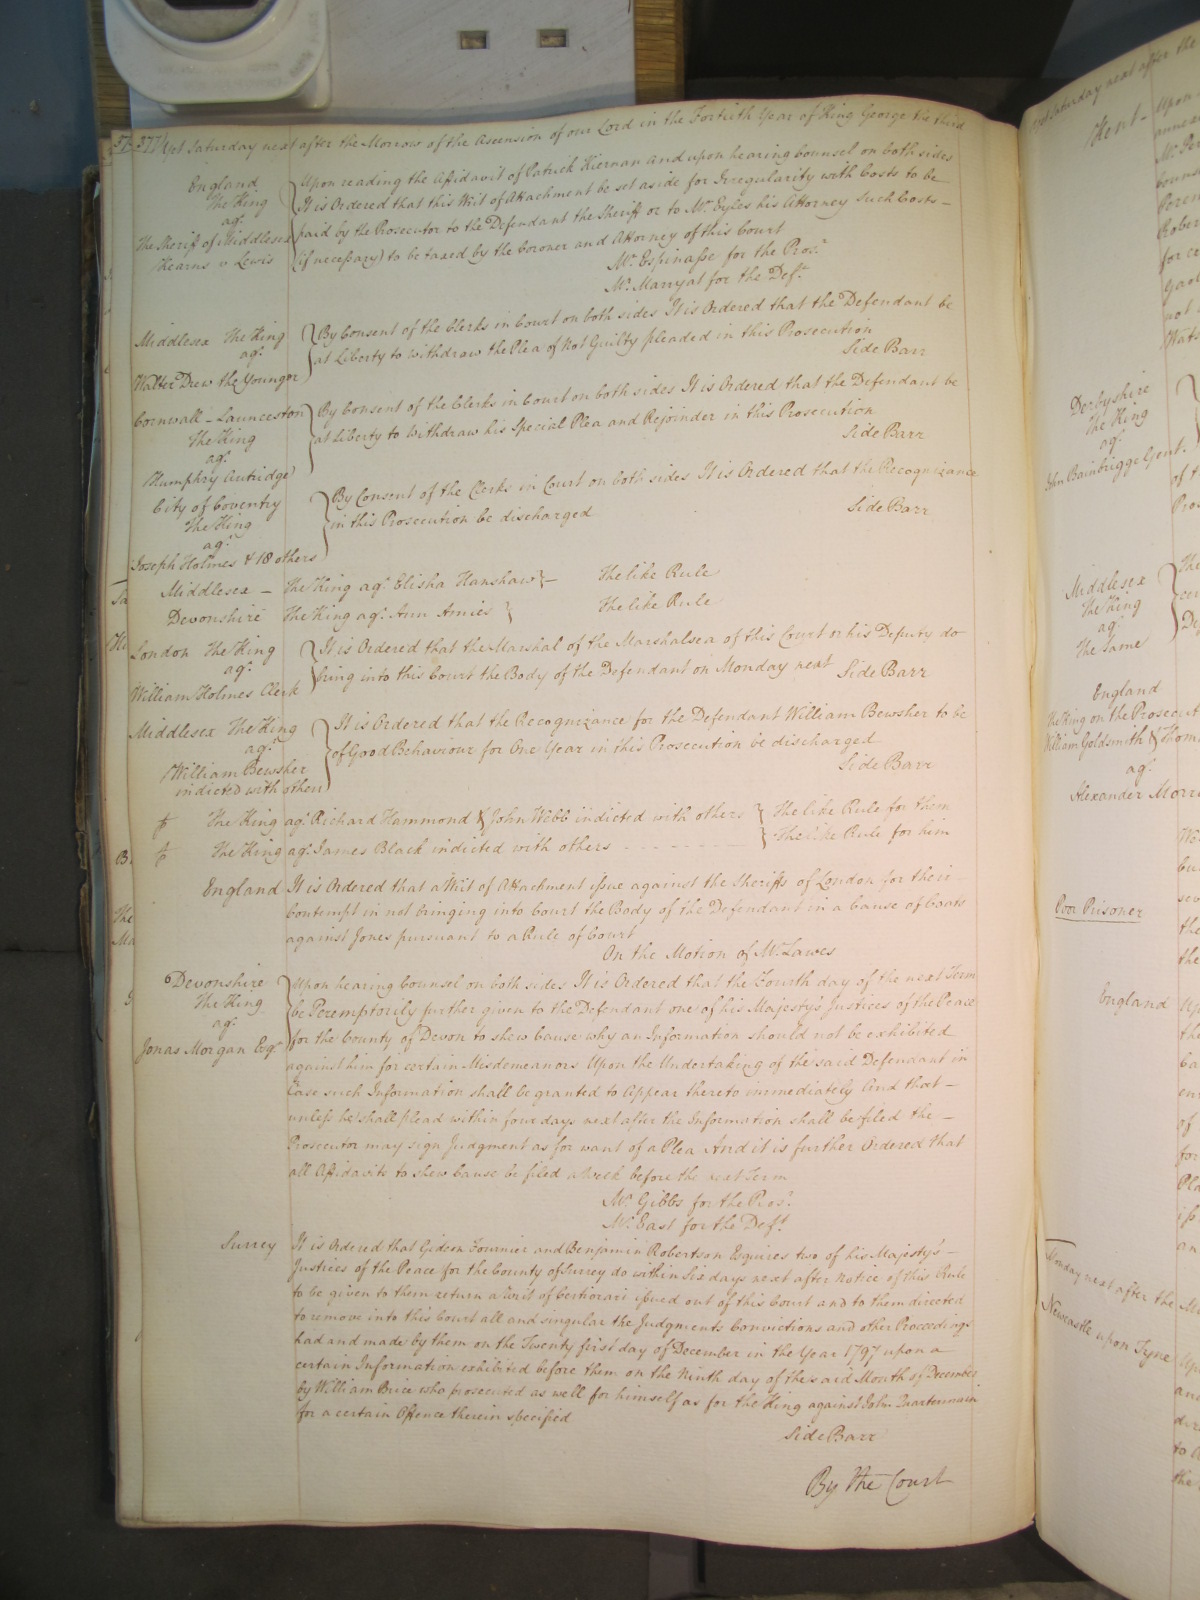 377 Yet Saturday next after the Morrow of the Ascension of our Lord in the Fortieth Year of King George the third
England
The King
agt
The Sheriff of Middlesex
Kearns v Lewis
Upon reading the Affidavit of Patrick Kiernan and upon hearing Counsel on both sides
It is Ordered that this Writ of Attachment be set aside for Irregularity with Costs to be
paid by the Prosecutor to the Defendant the Sheriff or to Mr Eyles his Attorney Such Costs –
(if necessary) to be taxed by the Coroner and Attorney of this Court
Mr Espinasse for the Prosr
Mr Marryat for the Deft
Middlesex The King
agt
Walter Drew the Younger
By Consent of the Clerks in Court on both sides It is Ordered that the Defendant be
at Liberty to withdraw the Plea of Not Guilty pleaded in this Prosecution
Side Barr
Cornwall – Launceston
The King
agt
Humphry Autridge
By Consent of the Clerks in Court on both sides It is Ordered that the Defendant be
at Liberty to Withdraw his Special Plea and Rejoinder in this Prosecution
Side Barr
City of Coventry
The King
agt
Joseph Holmes & 18 others
By Consent of the Clerks in Court on both sides It is Ordered that the Recognizance
in this Prosecution be discharged
Side Barr
Middlesex – The King agt Elisha Hanshaw – The like Rule
Devonshire The King agt Ann Amies The like Rule
London The King
agt
William Holmes Clerk
It is Ordered that the Marshal of the Marshalsea of this Court or his Deputy do
bring into this Court the Body of the Defendant on Monday next Side Barr
Middlesex The King
agt
William Bewsher
indicted with others
It is Ordered that the Recognizance for the Defendant William Bewsher to be
of Good Behaviour for One Year in this Prosecution be discharged
Side Barr
The King agt Richard Hammond & John Webb indicted with others The like Rule for them
The King agt James Black indicted with others The like Rule for him
England It is Ordered that a Writ of Attachment issue against the Sheriffs of London for their –
Contempt in not bringing into Court the Body of the Defendant in a Cause of Coats
against Jones pursuant to a Rule of Court
On the Motion of Mr Lawes
Devonshire
The King
agt
Jonas Morgan Esqr
Upon hearing Counsel on both sides It is Ordered that the Fourth day of the next Term
be Peremptorily further given to the Defendant one of his Majesty's Justices of the Peace
for the County of Devon to shew Cause why an Information should not be exhibited
against him for certain Misdemeanors Upon the Undertaking of the said Defendant in
Case such Information shall be granted to Appear thereto immediately And that –
unless he shall plead within four days next after the Information shall be filed the –
Prosecutor may sign Judgment as for want of a Plea And it is further Ordered that
all Affidavits to shew Cause be filed a Week before the next Term
Mr Gibbs for the Prosr
Mr East for the Deft
Surrey It is Ordered that Gideon Fournier and Benjamin Robertson Esquires two of his Majesty's –
Justices of the Peace for the County of Surrey do within Six days next after Notice of this Rule
to be given to them return a Writ of Certiorari issued out of this Court and to them directed
to remove into this Court all and singular the Judgments Convictions and other Proceedings
had and made by them on the Twenty first day of December in the Year 1797 upon a
certain Information exhibited before them on the Ninth day of the said Month of December
by William Price who prosecuted as well for himself as for the King against John Quartermain
for a certain Offence therein specified
Side Barr
By the Court
Saturday next after the
Kent –
Upon
Derbyshire
The King
agt
John Bainbrigge Gent.
Middlesex
The King
agt
The Same
England
The King on the Prosecut
William Goldsmith & Thom
agt
Alexander Morri
Poor Prisoner
England
Monday next after the
Newcastle upon Tyne